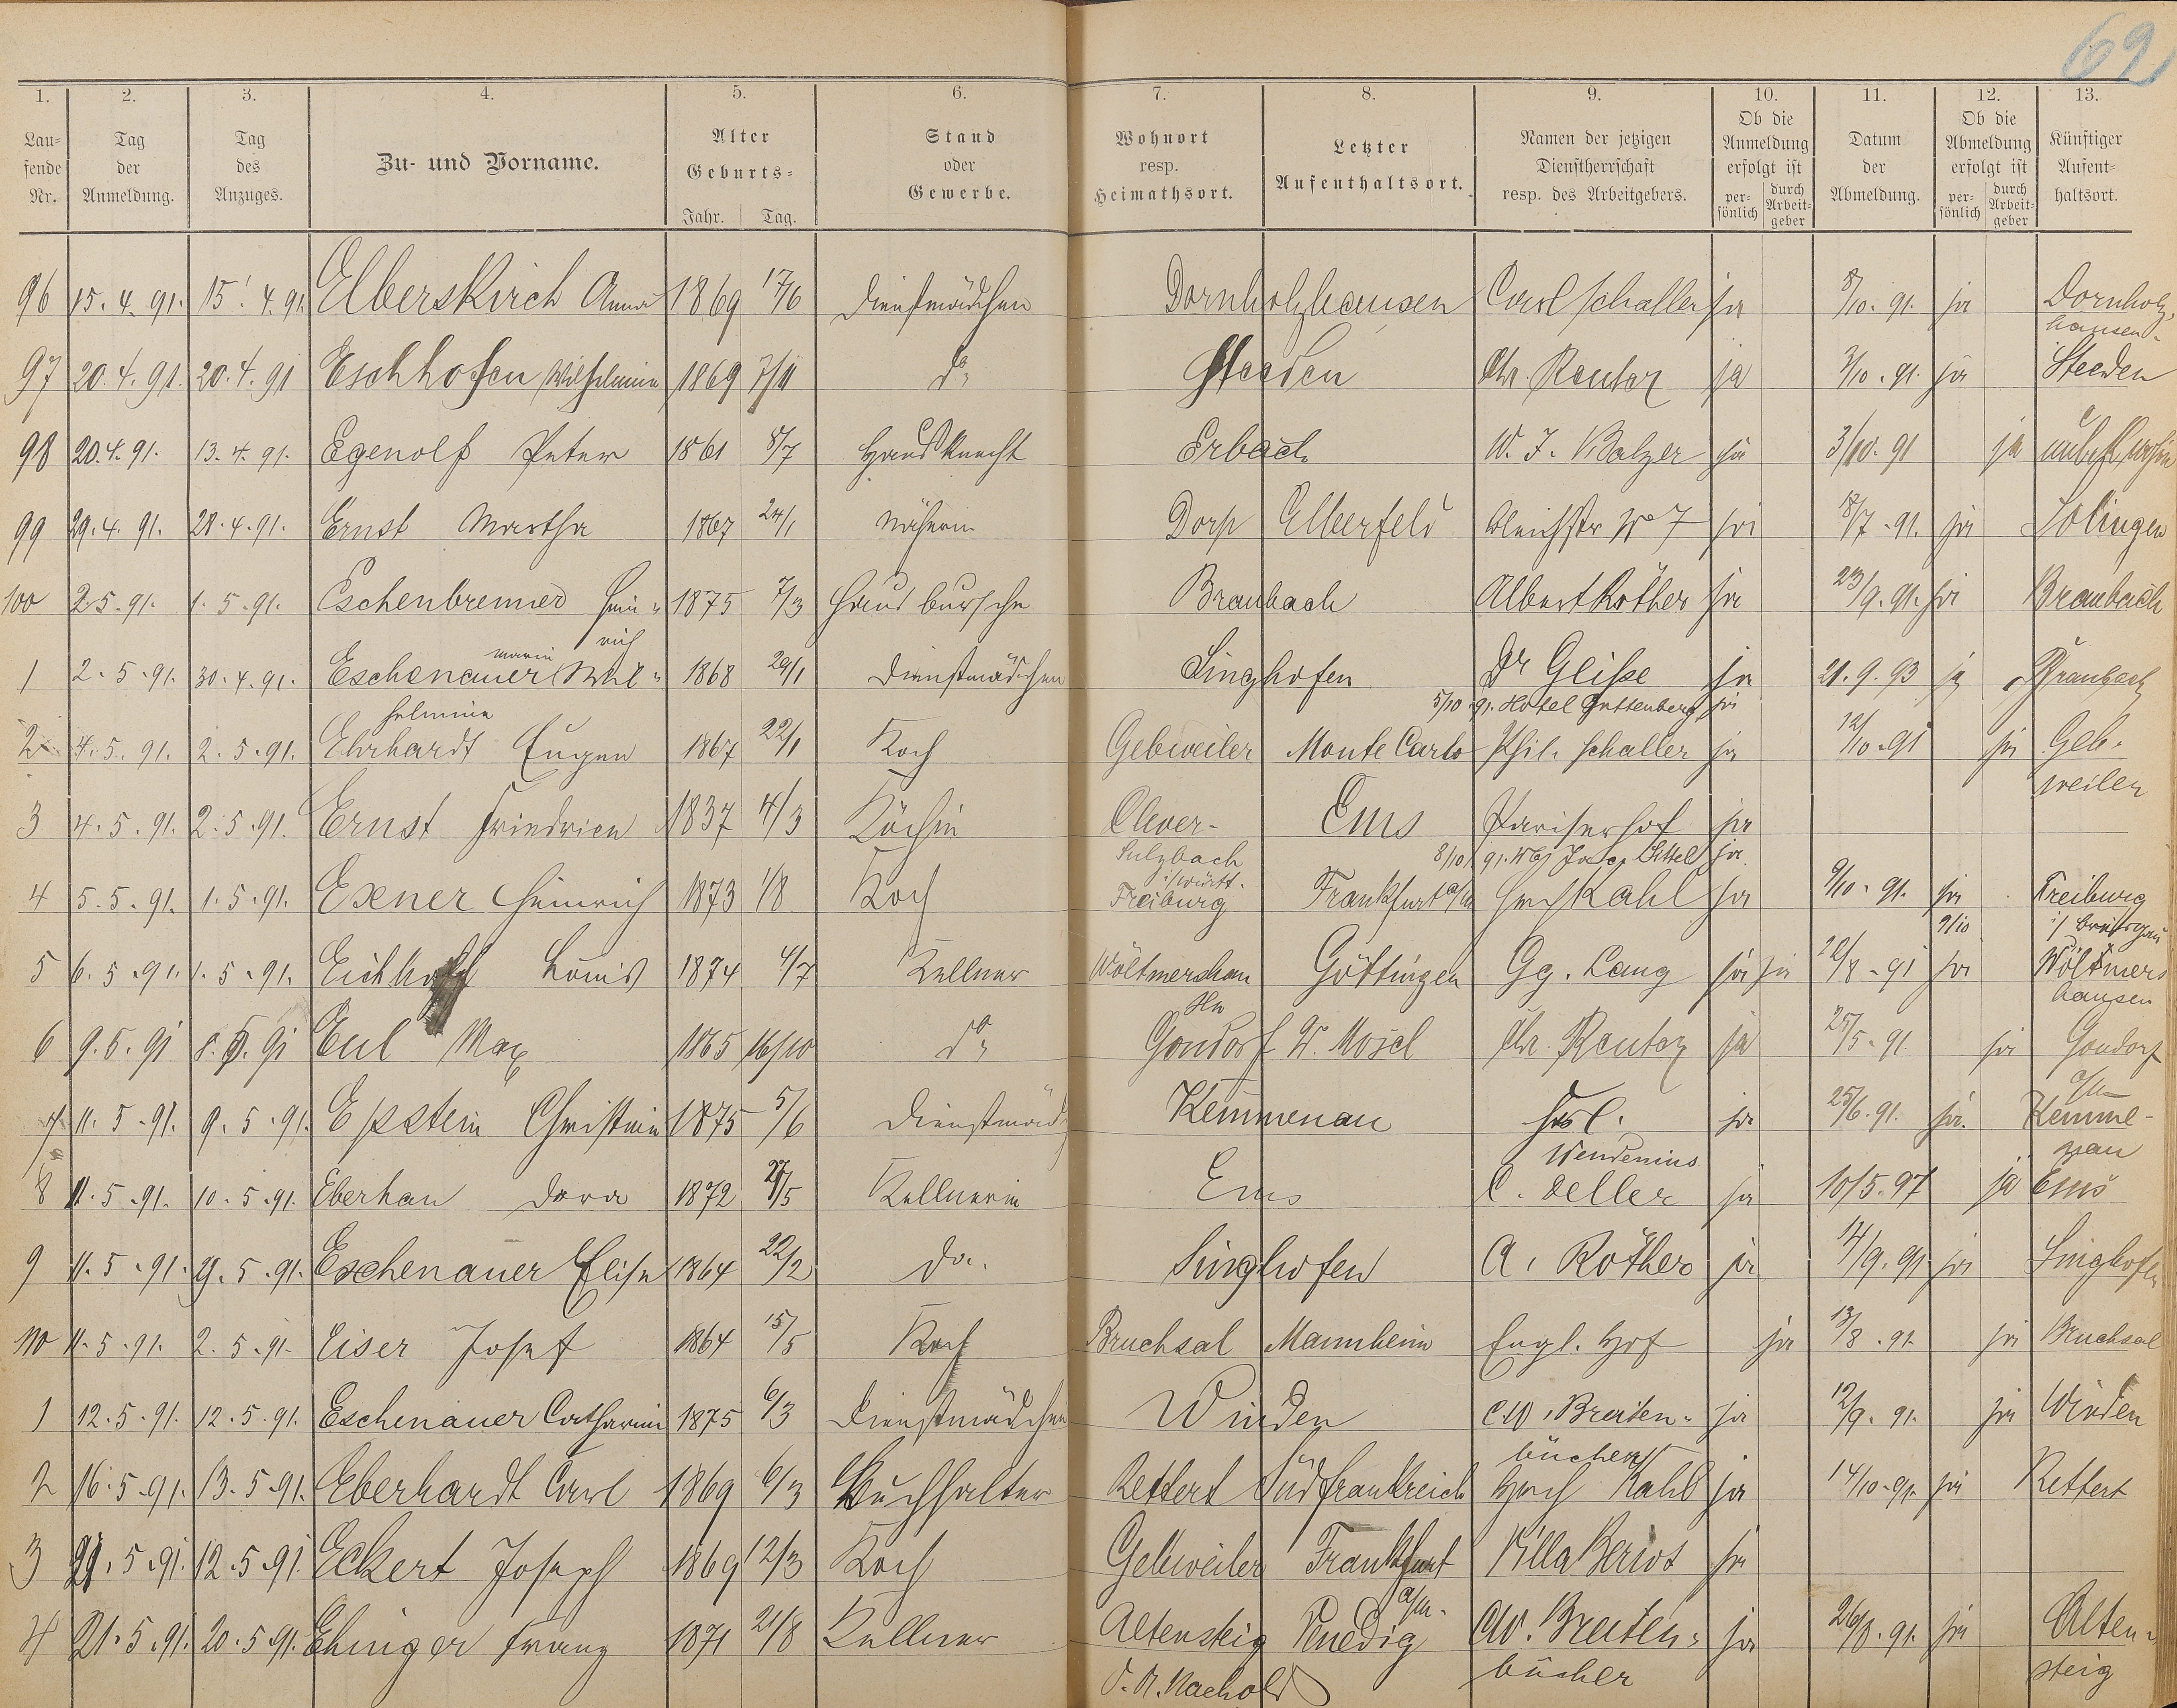 69
1. 2. 3. 4. 5. 6. 7. 8. 9. 10. 11. 12. 13.
Laufende Nr. Tag der Anmeldung. Tag des Anzuges. Zu- und Vorname. Alter Geburts- Jahr. Tag. Stand oder Gewerbe. Wohnort resp. Heimathsort. Letzter Aufenthaltsort. Namen der jetzigen Dienstherrschaft resp. des Arbeitgebers. Ob die Anmeldung erfolgt ist persönlich durch Arbeitgeber Datum der Abmeldung. Ob die Abmeldung erfolgt ist persönlich durch Arbeitgeber Künftiger Aufenthaltsort.
96 15. 4. 91. 15. 4. 91. Elberskirch Anna 1869 17/6 Dienstmädchen Dornholzhausen Carl Schaller ja 8/10. 91. ja Dornholz,
hausen.
97 20. 4. 91. 20. 4. 91 Eschhofen Wilhelmine 1869 7/11 do Steeden Chr. Reuter ja 3/10. 91. ja Steeden
98 20. 4. 91. 13. 4. 91. Egenolf Peter 1861 8/7 Hausknecht Erbach W. J. Balzer ja 3/10. 91 ja
99 29. 4. 91. 28. 4. 91. Ernst Martha 1867 24/1 Näherin Dorp Elberfeld Bleichstr No 7 ja 18/7. 91. ja Solingen
100 2. 5. 91. 1. 5. 91. Eschenbrenner Hein- 1875 7/3 Hausbursche Braubach Albert Röther ja 23/9. 91. ja Braubach
rich
1 2. 5. 91. 30. 4. 91. Eschenauer Marie Wil- 1868 29/1 Dienstmädchen Singhofen Dr Gliße ja 21. 9. 93 ja Braubach
helmine 5/10 91. Hotel Guttenberg ja
2 4. 5. 91. 2. 5. 91. Ehrhardt Eugen 1867 22/1 Koch Gebweiler Monte Carlo Phil. Schaller ja 12/10. 91 ja Geb-
weiler
3 4. 5. 91. 2. 5. 91. Ernst Friedricke 1837 4/3 Köchin Clever- Ems Pariserhof ja
Sulzbach 8/10 91. Jacg Bittel ja
i/Württ.
4 5. 5. 91. 1. 5. 91. Exener Heinrich 1873 1/8 Koch Freiburg Frankfurt a/M Hch Kahl ja 9/10. 91. ja Freiburg
9/10 i/ Breisgau
5 6. 5. 91. 1. 5. 91. Eichhoff Louis 1874 4/7 Kellner Wöltmershau Göttingen Gg. Lang ja ja 22/8. 91 ja Wöltmers
hausen
6 9. 5. 91 8. 5. 91 Eul Max 1865 16/10 do Gondorf W. Mosel Chr. Reuter ja 25/5. 91. ja Gondorf
a/M
7 11. 5. 91. 9. 5. 91. Epstein Christine 1875 5/6 Dienstmädch Kemmenau Frl. ja 25/6. 91. ja. Kemme-
Wendenius nau
8 11. 5. 91. 10. 5. 91. Eberhan Dora 1872 27/5 Kellnerin Ems C. Deller ja 10/5. 97 ja Ems
9 11. 5. 91. 9. 5. 91. Eschenauer Elise 1864 22/2 do. Singhofen A. Röther ja 14/9. 91 ja Singhofen
110 11. 5. 91. 2. 5. 91. Eiser Josef 1864 15/5 Koch Bruchsal Mannheim Engl. Hof ja 13/8. 91. ja Bruchsal
1 12. 5. 91. 12. 5. 91. Eschenauer Catharine 1875 6/3 Dienstmädchen Winden C W. Breiten- ja 12/9. 91. ja Winden
bücher
2 16. 5. 91. 13. 5. 91. Eberhardt Carl 1869 6/3 Buchhalter Rettert Südfrankreich Hch Kahl ja 14/10. 91. ja Rettert
3 21. 5. 91. 12. 5. 91. Eckert Joseph 1869 12/3 Koch Gebweiler Frankfurt Villa Beriot ja
a/M.
4 21. 5. 91. 20. 5. 91. Ehinger Franz 1871 21/8 Kellner Altensteig Venedig C W. Breiten- ja 26/8. 91. ja Alten-
O. A. Nachold bücher steig